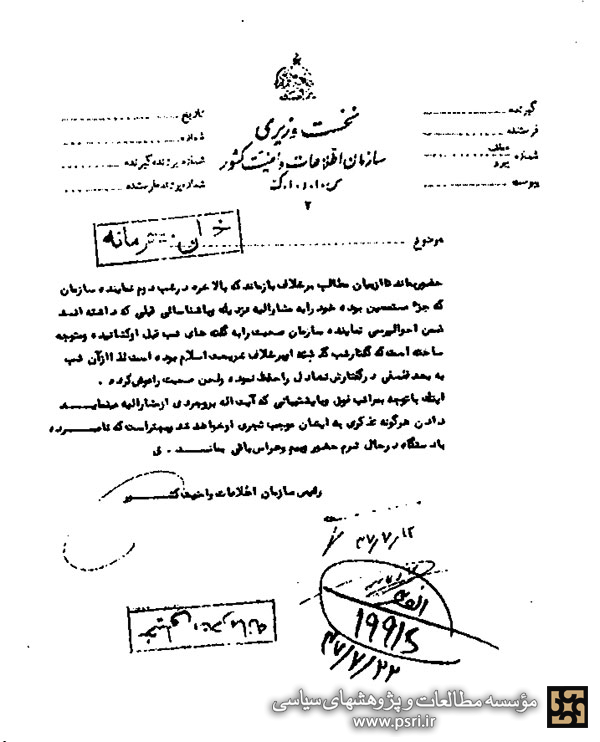 نخست وزیری
سازمان اطلاعات و امنیت کشور
س.ا.و.ا.ک
گیرنده
فرستنده
شماره
پیوست
تاریخ
شماره
شماره پرونده گیرنده
شماره پرونده فرستنده
۲
موضوع
خیلی محرمانه
حضور بماند تا از بیان مطالب برخلاف بازماند که بالاخره در شب دوم نماینده سازمان
که جزء مستمعین بوده خود را به مشارالیه نزدیک و با شناسائی قبلی که داشته است
ضمن احوالپرسی نماینده سازمان صحبت را به گفته های شب قبل او کشانیده و متوجه
ساخته است که گفتار شب گذشته او برخلاف شریعت اسلام بوده است لذا از آن شب
به بعد فلسفی در گفتارش تعادل را حفظ نموده و لحن صحبت را عوض کرده .
اینک با توجه بمراتب فوق و با پشتیبانی که آیت اله بروجردی از مشارالیه مینمایند
دادن هرگونه تذکری به ایشان موجب تجری او خواهد شد بهتر است که نامبرده
با دستگاه در حال شرم حضور و بیم و هراس باقی بماند . ی
رئیس سازمان اطلاعات و امنیت کشور
۳۷/۷/۱۲
۱۹۹۱۵
۳۷/۷/۲۲
خیلی محرمانه
مؤسسه مطالعات و پژوهشهای سیاسی
www.psri.ir